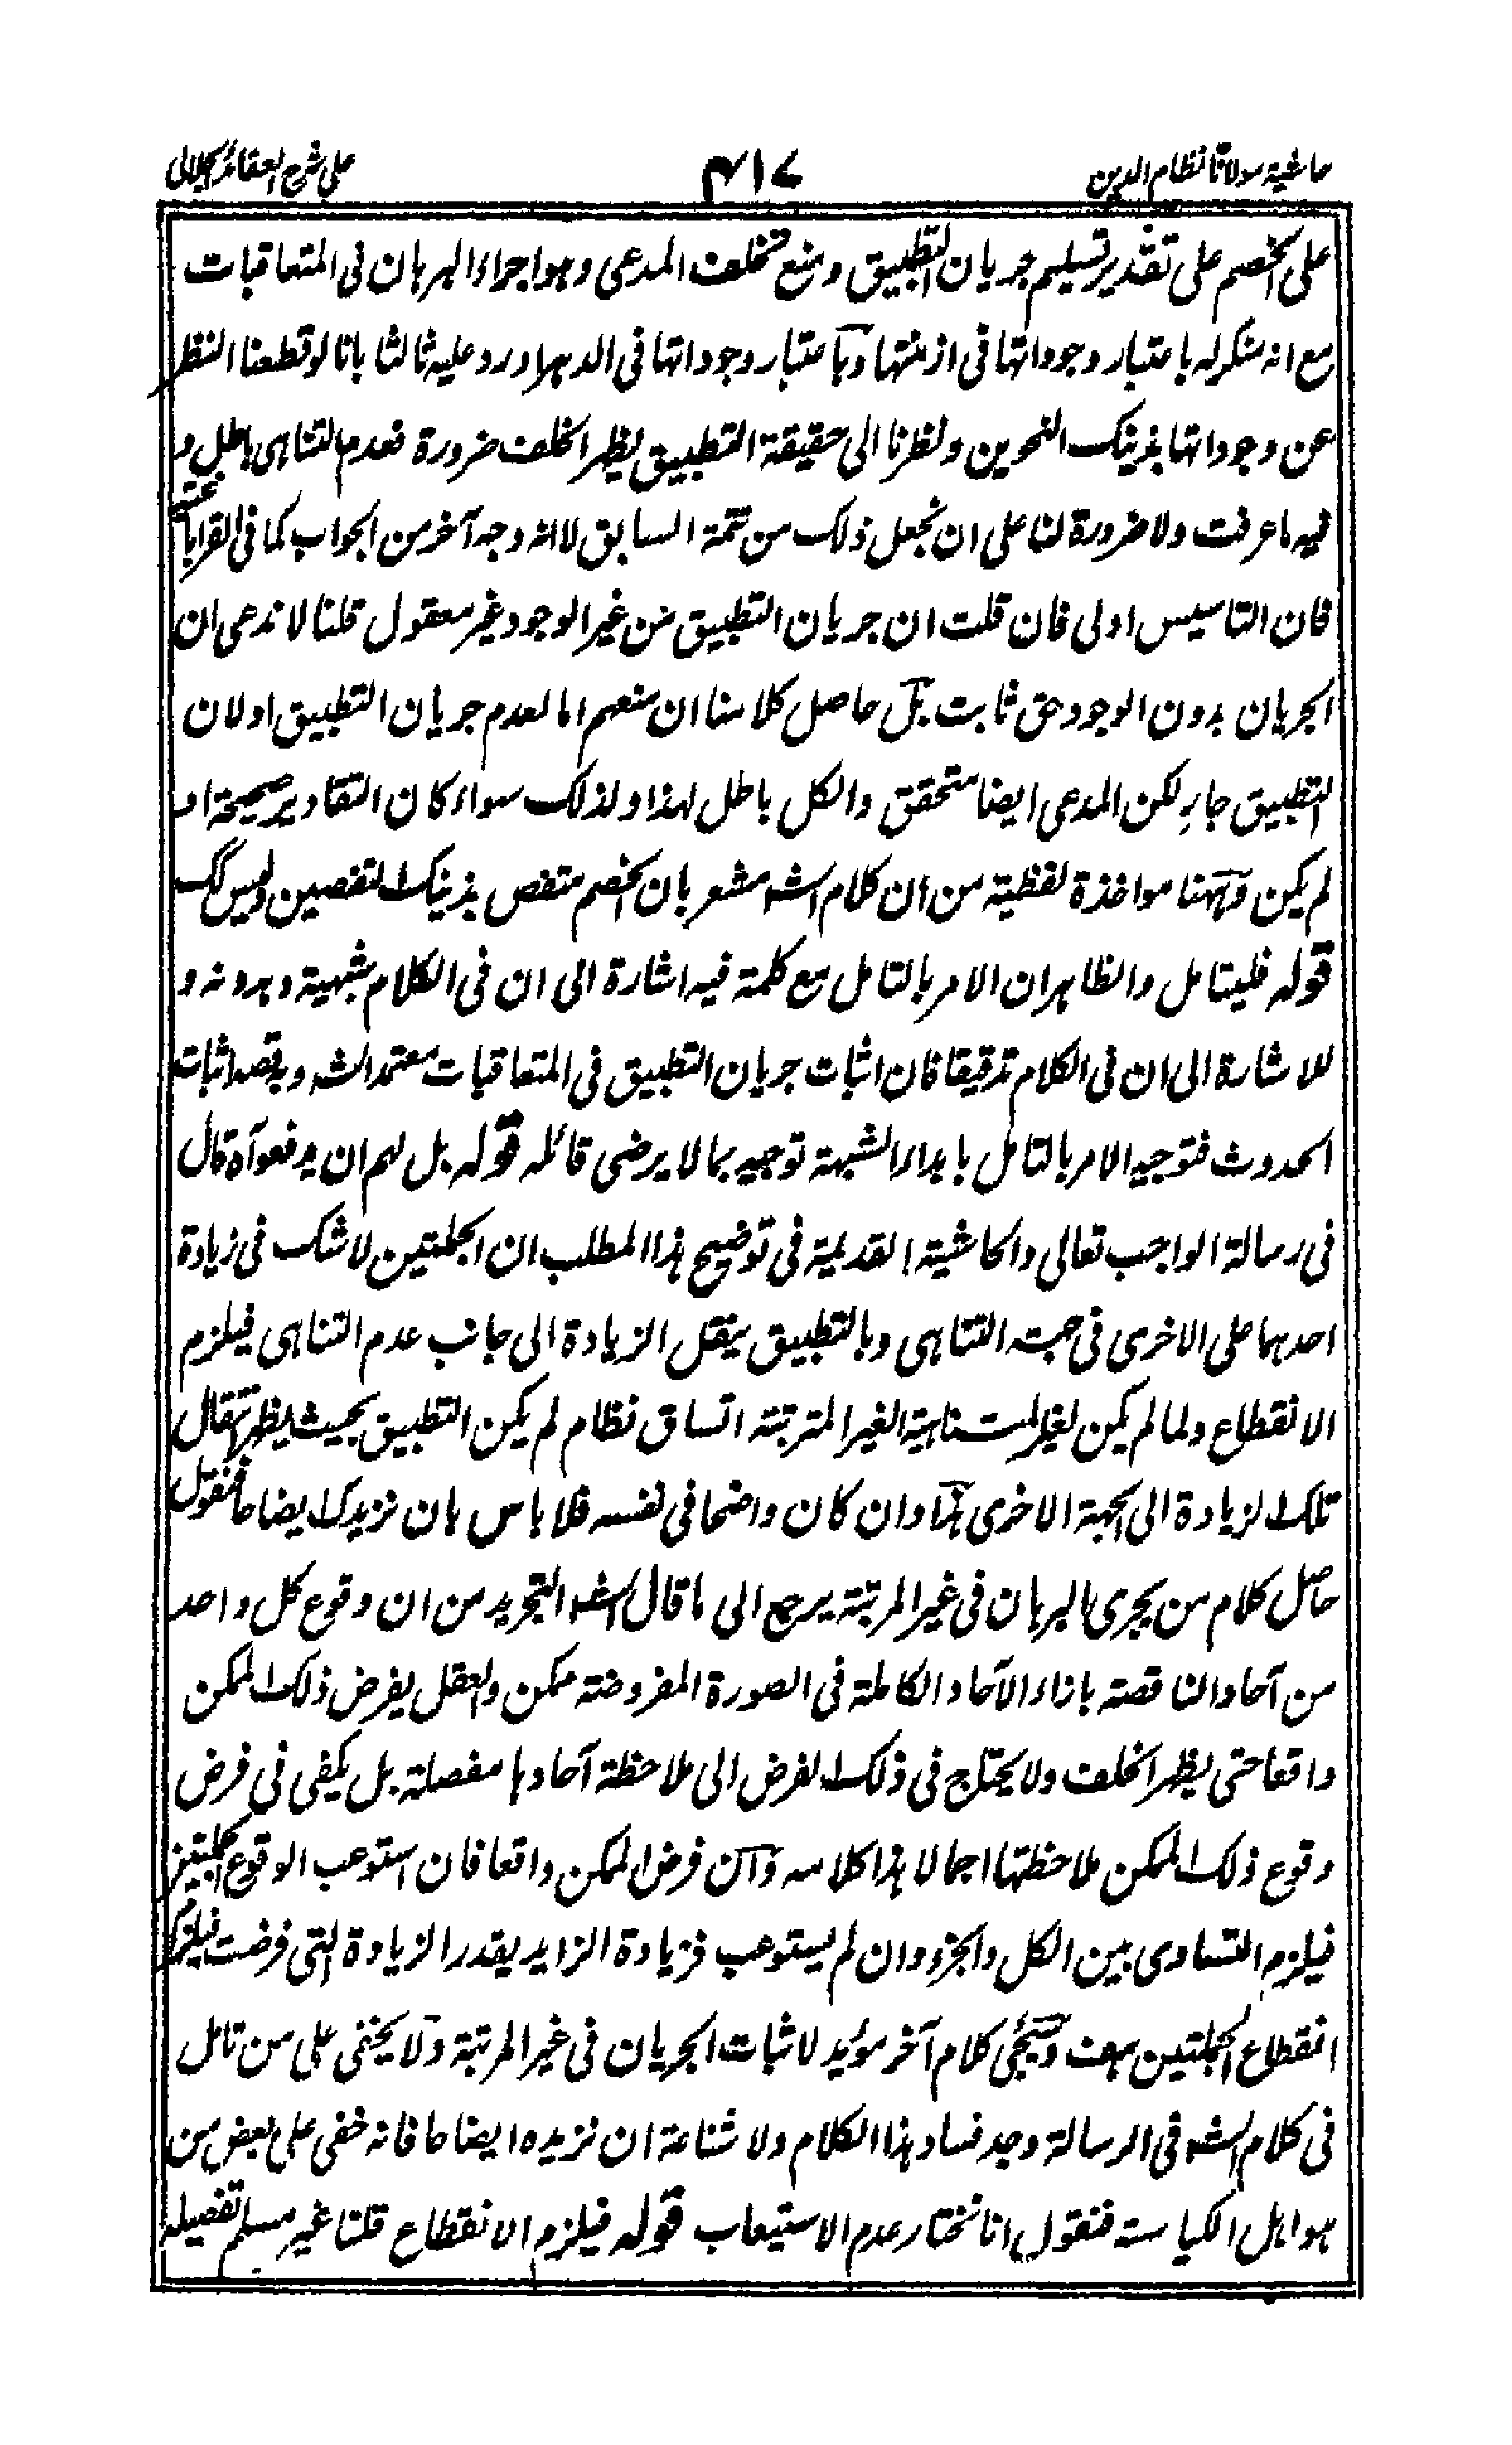 حاشیة مولانا نظام الدین
۴۱۷
علی شرح العقائد الجلالی
علی الخصم علی تقدیر تسلیم جریان التطبیق ومنع تخلف المدعی وهو اجراء البرهان فی المتعاقبات
مع انه منکر له باعتبار وجوداتها فی ازمنتها وباعتبار وجوداتها فی الدهر اورد علیه ثالثا بانا لو قطعنا النظر
عن وجوداتها بذینک النحوین ونظرنا الی حقیقة التطبیق یظهر الخلف ضرورة فعدم التناهی باطل و
فیه ما عرفت ولا ضرورة لنا علی ان نجعل ذلک من تتمة السابق لا انه وجه آخر من الجواب کما فی
فان التاسیس اولی فان قلت ان جریان التطبیق من غیر الوجود غیر معقول قلنا لا ندعی ان
الجریان بدون الوجود حق ثابت بل حاصل کلامنا ان منعهم اما لعدم جریان التطبیق او لان
التطبیق جار لکن المدعی ایضا متحقق والکل باطل لهذا ولذلک سواء کان التقادیر صحیحة او
لم یکن وههنا مواخذة لفظیة من ان کلام الشه مشعر بان الخصم متفص بذینک التفصین ولیس کک
قوله فلیتامل والظاهر ان الامر بالتامل مع کلمة فیه اشارة الی ان فی الکلام شبهیة وبدونه و
للاشارة الی ان فی الکلام تدقیقا فان اثبات جریان التطبیق فی المتعاقبات معتمد الشه وبه قصد اثبات
الحدوث فتوجیه الامر بالتامل بابداء الشبهة توجیه بما لا یرضی قائله قوله بل لهم ان یدفعوآه قال
فی رسالة الواجب تعالی والحاشیة القدیمة فی توضیح هذا المطلب ان الجملتین لا شک فی زیادة
احدهما علی الاخری فی جهة التناهی وبالتطبیق ینتقل الزیادة الی جانب عدم التناهی فیلزم
الانقطاع ولما لم یکن لغیر المتناهیة الغیر المترتبة اتساق نظام لم یکن التطبیق بحیث یظهر انتقال
تلک الزیادة الی الجهة الاخری هذا وان کان واضحا فی نفسه فلا باس بان نزیدک ایضاحا فنقول
حاصل کلام من یجری البرهان فی غیر المرتبة یرجع الی ما قال الشه التجرید من ان وقوع کل واحد
من آحاد الناقصة بازاء الآحاد الکاملة فی الصورة المفروضة ممکن والعقل یفرض ذلک الممکن
واقعا حتی یظهر الخلف ولا یحتاج فی ذلک الفرض الی ملاحظة آحادها مفصلة بل یکفی فی فرض
وقوع ذلک الممکن ملاحظتها اجمالا هذا کلامه وآن فرض الممکن واقعا فان استوعب الوقوع الجملتین
فیلزم التساوی بین الکل والجزء وان لم یستوعب فزیادة الزاید بقدر الزیادة التی فرضت فیلزم
انقطاع الجملتین بهف وسیجئی کلام آخر مؤید لاثبات الجریان فی غیر المرتبة ولا یخفی علی من تامل
فی کلام الشه فی الرسالة وجد فساد هذا الکلام ولا شناعة ان نزیده ایضاحا فانه خفی علی بعض من
هو اهل الکیاسته فنقول انا نختار عدم الاستیعاب قوله فیلزم الانقطاع قلنا غیر مسلم تفصیله